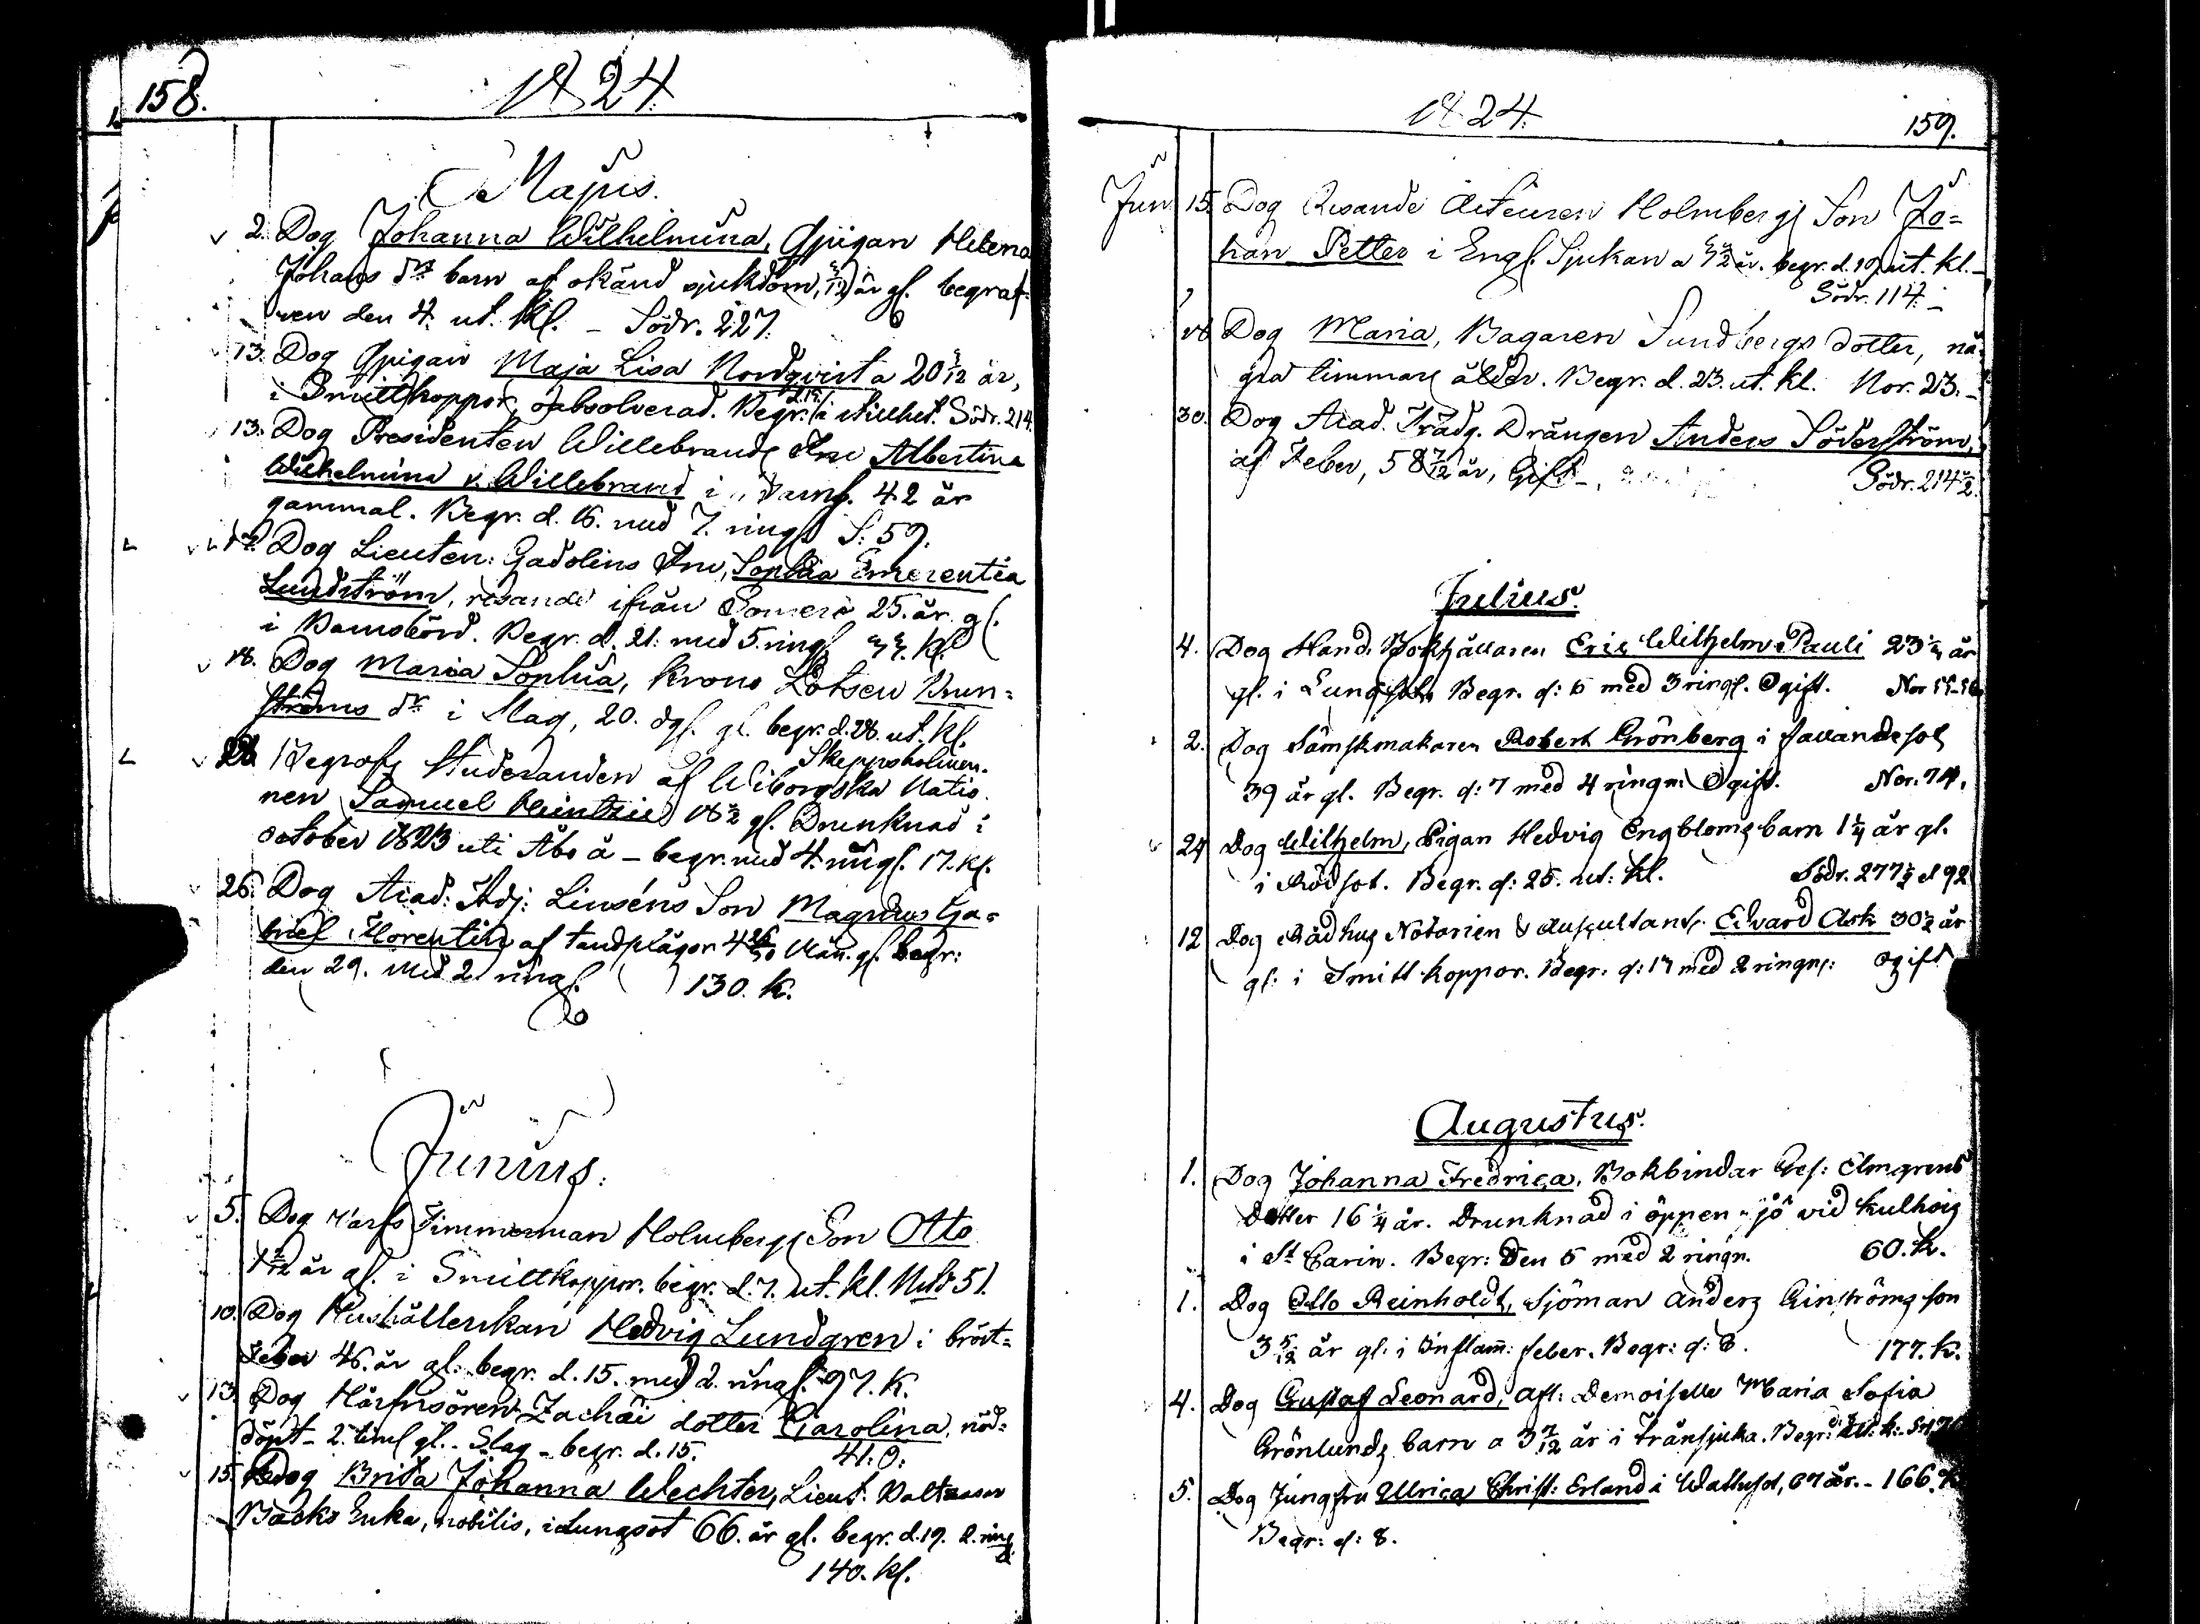 158.
1824.
Majus.
2. Dog Johanna Wilhelmina, Gpigan Helena
Johans dr barn af okänd sjukdom, år gl. begraf-
ven den 4. ut. Kl. - Södr. 227.
13. Dog Gpigan Maja Lisa Nordqvist a 20 år,
i Smittkoppor, oabsolverad. Begr. i stillhet. Södr. 214.
13. Dog Presidenten Willebrands Fru Albertina
Wilhelmina v. Willebrand i 42 år
gammal. Begr. d. 16. med 7. ringr S: 59.
Dog Lieuten: Gadolins Fru, Sophia Emerentia
Lundström, resande ifrån Somero 25. år gl.
i Barnsbörd. Begr. d. 21. med 5. ringr Kl.
18. Dog Maria Sophia, Krono Lotsen Brun-
ströms dr i Slag, 20. dgr. gl. begr. d. 28. ut. Kl.
Skeppsholmen.
Begrofs Studeranden af Wiborgska Natio-
nen Samuel 18 1/2 gl. Drunknad i
October 1823 uti Åbo å - begr. med 4. ringr. 17. Kl.
26. Dog Acad: Adj: Linséns Son Magnus Ga-
briel Florentin af tandplågor 4 26/30 Mån. gl. begr:
den 29. Med 2. ringr. 130. K.
Junius.
5. Dog Timmerman Holmbergs Son Otto
år gl. i Smittkoppor. begr. d. 7. ut. kl. 51.
10. Dog Hushållerskan Hedvig Lundgren i bröst-
feber 46. år gl. begr. d. 15. med 2. ringr. 97. K.
13. Dog Zachæi dotter Carolina, nöd-
döpt - 2. tim gl. - Slag - begr. d. 15. 41. O.
15. Dog Brita Johanna Wechter, Lieut.
Bäcks Enka, nobilis, i Lungsot 66. år gl. begr. d. 19. 2. ring
140. Kl.
1824.
159.
Jun. 15. Dog Resande Acteuren Holmbergs Son Jo-
han Petter i Engl. Sjukan a år. begr. d. 19 ut. kl. -
Södr. 114. -
18 Dog Maria, Bagaren Sundbergs dotter, nå-
gra timmars ålder. Begr. d. 23. ut. kl. Nor. 23. -
30. Dog Acad. Trädg. Drängen Anders Söderström,
af Feber, 58 7/12 år, Gift -
Södr. 214 1/2.
Julius.
4. Dog Hand. Bokhållaren Eric Wilhelm Pauli 23 år
gl. i Lungsot. Begr. d: 6 med 3 ringr. Ogift. Nor
2. Dog Sämskmakaren Robert Grönberg i
39 år gl. Begr. d: 7 med 4 ringn: Ogift. Nor. 74.
24 Dog Wilhelm, Pigan Hedvig Engbloms barn 1 1/4 år gl.
i Rödsot. Begr. d: 25. ut: kl. Södr. 277 1/2 d 92
12 Dog Rådhus Notarien & Auscultant. Edvard Ask 30 1/2 år
gl: i Smittkoppor. Begr: d: 17 med 2 ringn: ogift
Augustus.
1. Dog Johanna Fredrica, Bokbindar Ges: Elmgrens
Dotter 16 1/4 år. Drunknad i öppen sjö vid Kulhoig
i St Carin. Begr: Den 6 med 2 ringn. 60. K.
1. Dog Otto Reinholdt, Sjöman Anders Ginströms son
3 5/12 år gl: i Inflam: feber. Begr: d: 8. 177. K.
4. Dog Gustaf Leonard, Afl: Demoiselle Maria Sofia
Grönlunds barn a 3 7/12 år i Trånsjuka. Begr:
5. Dog Jungfru Ulrica Christ: Erland i Wattusot, 67 år. - 166. K
Begr: d: 8.